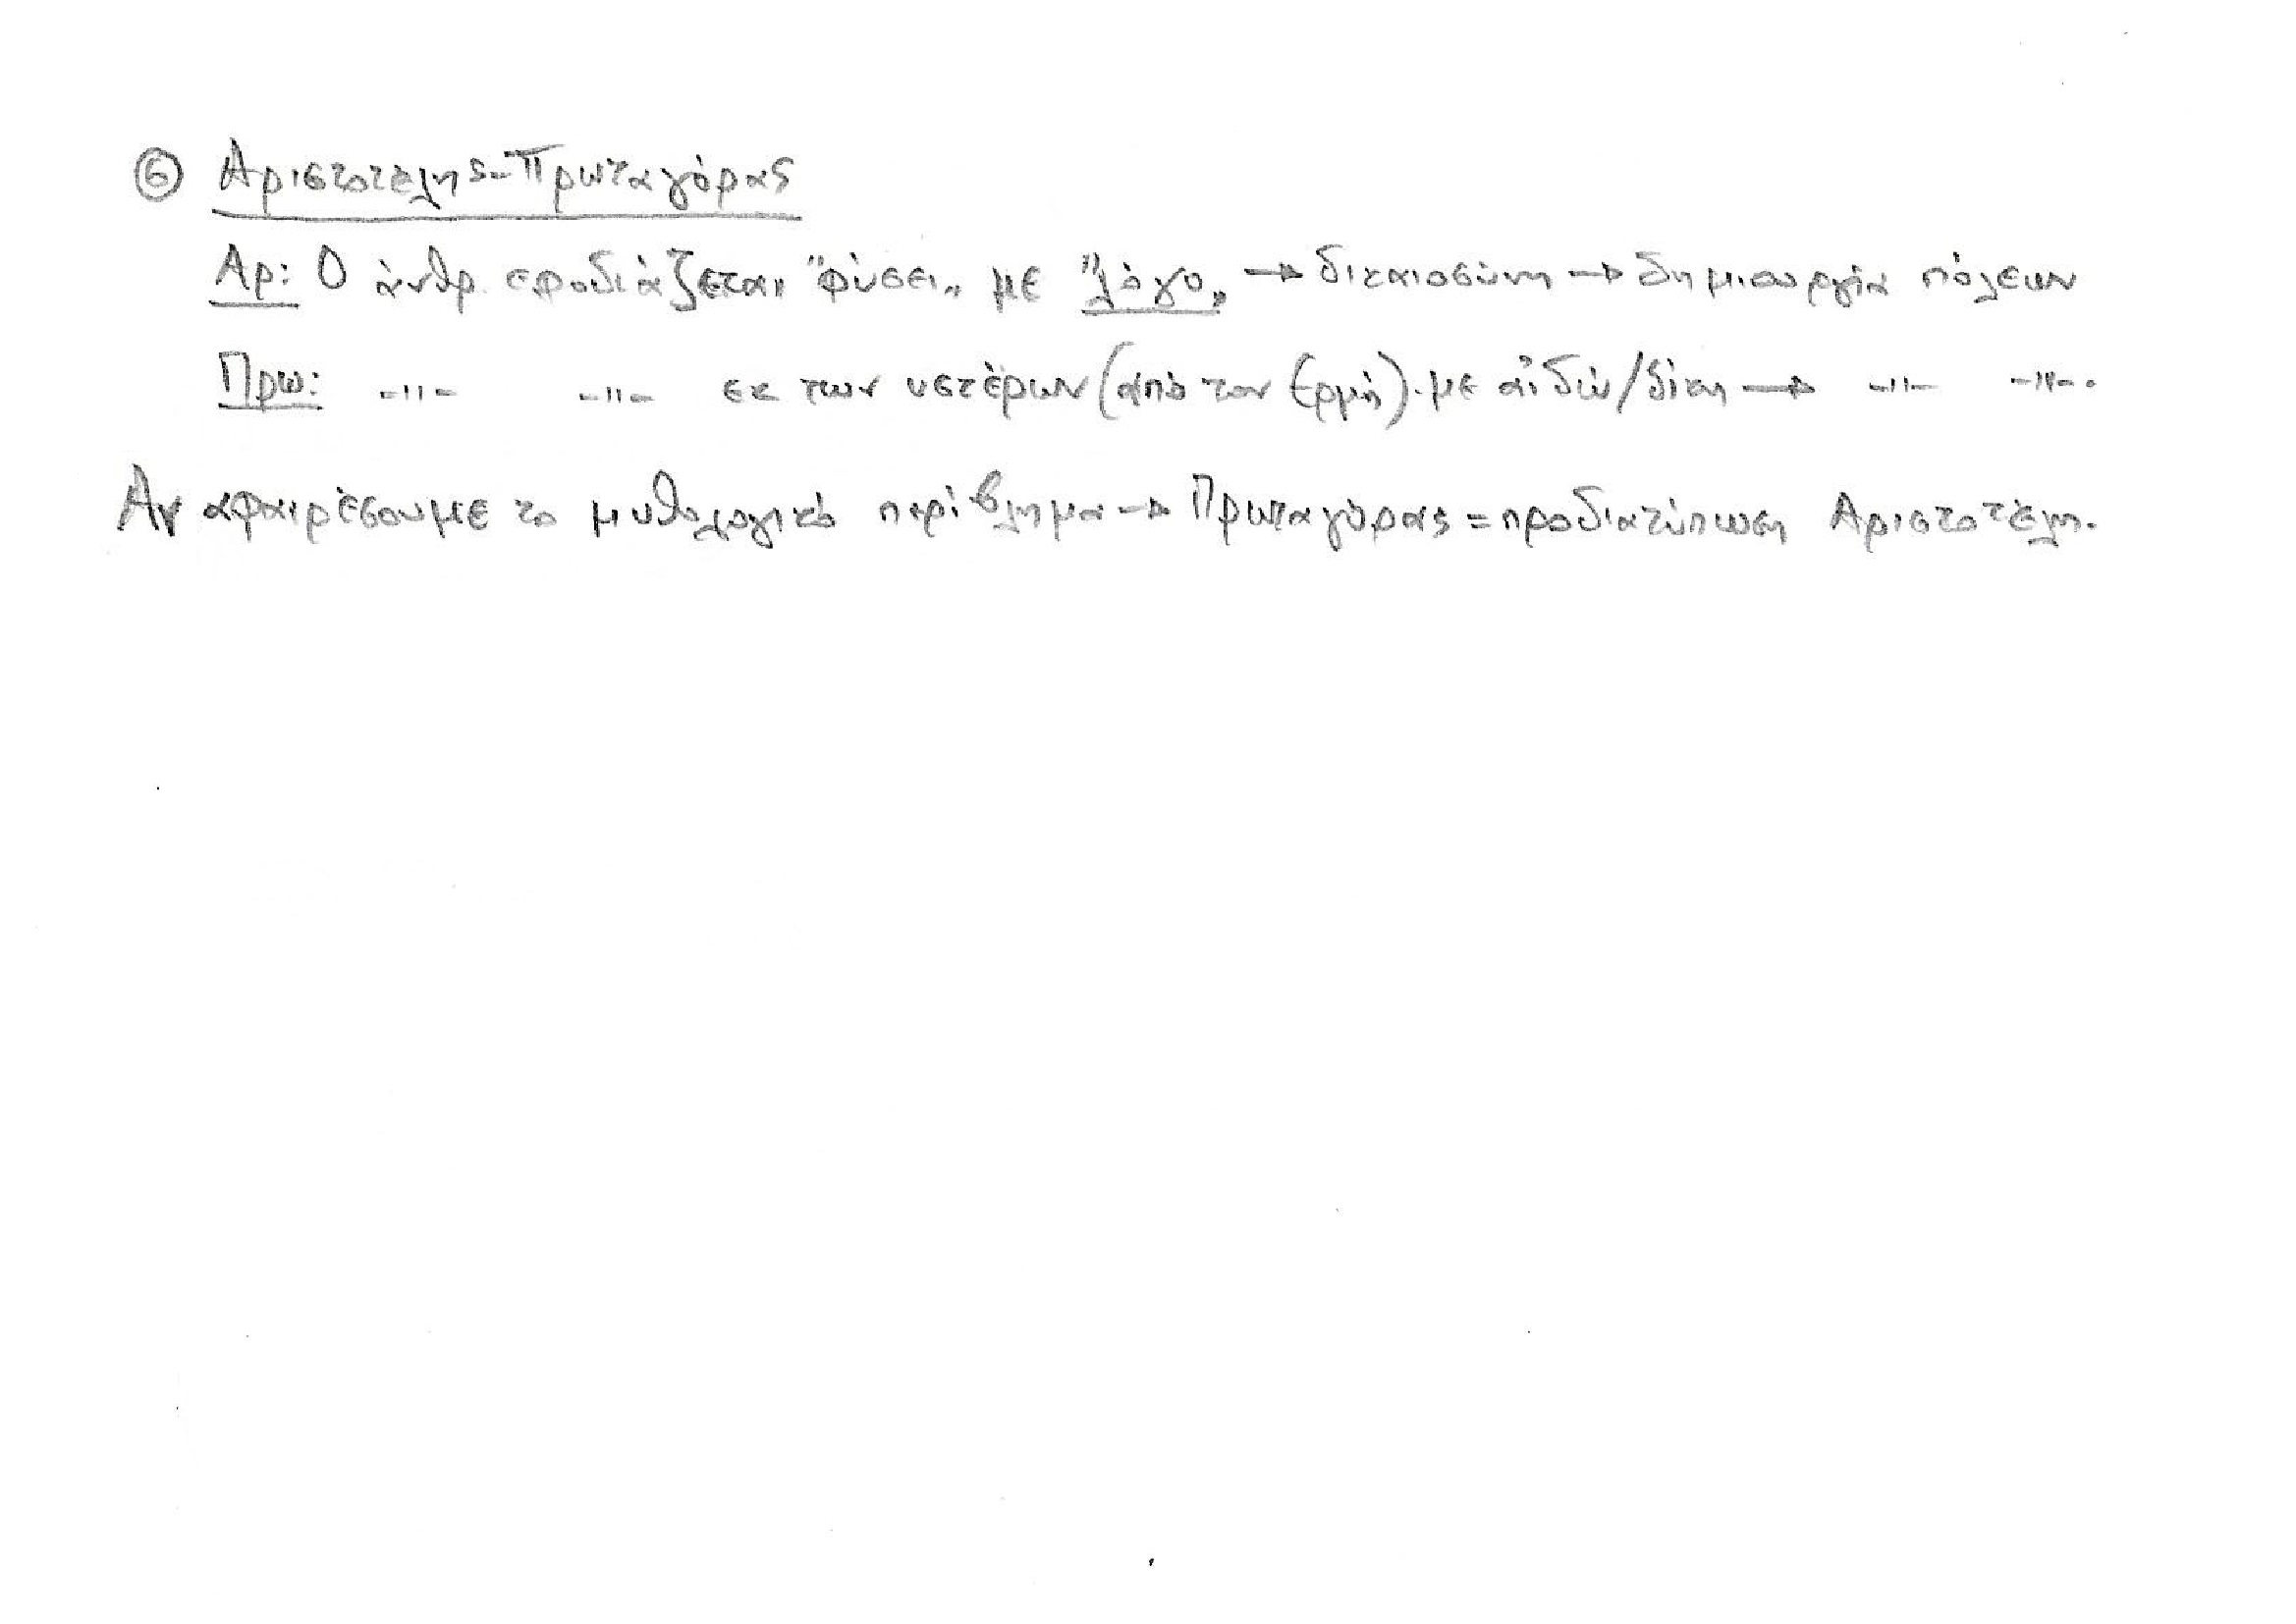 ⑥ Αριστοτέλης-Πρωταγόρας
Αρ: Ο άνθρ. εφοδιάζεται "φύσει„ με "λόγο„ → δικαιοσύνη → δημιουργία πόλεων
Πρω: -"- -"- εκ των υστέρων (από τον Ερμή). με αἰδώ/δίκη → -"- -"-.
Αν αφαιρέσουμε το μυθολογικό περίβλημα → Πρωταγόρας = προδιατύπωση Αριστοτέλη.